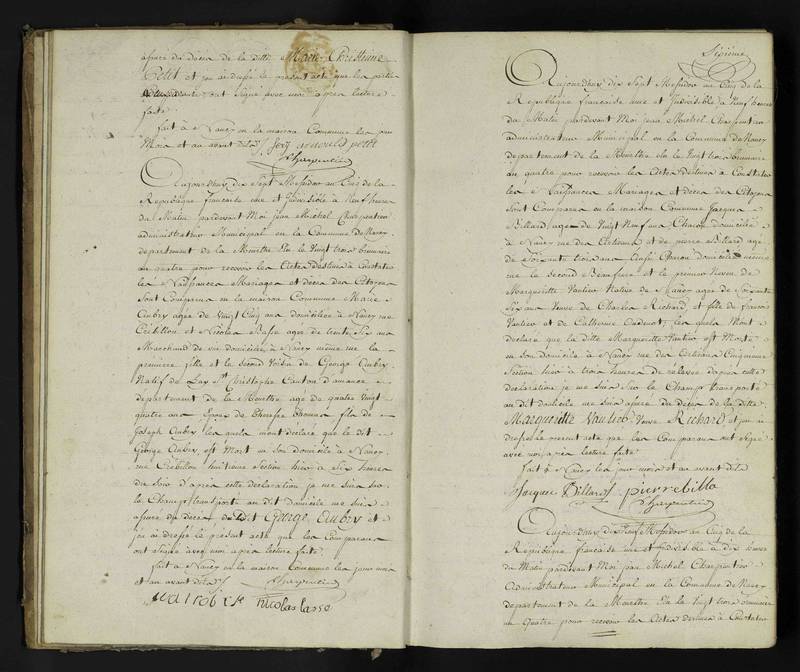 assuré du décès de la ditte Marie Christienne
Petit et j'ai dressé le présent acte que les parties
ont signé avec moi après lecture
faite
fait à Nancy en la maison Commune les jour
Mois et an avant dits
arnould petit
Charpentier
Aujourdhuy dix Sept Messidor an Cinq de la
République francaise une et Indivisible à Neuf heures
du Matin pardevant Moi jean Michel Charpentier
administrateur Municipal en la Commune de Nancy
departement de la Meurthe Elu le Vingt trois brumaire
an quatre pour recevoir les Actes destinés à Constater
les Naissances Mariages et décès des Citoyens
Sont Comparus en la maison Commune Marie
Aubry agée de Vingt Cinq ans domiciliée à Nancy rue
Crébillon et Nicolas agé de trente Six ans
Marchand de vin domicilié à Nancy même rue la
première fille et le Second Voisin de George Aubry
Natif de Lay St Christophe Canton d'amance
departement de la Meurthe age de quatre Vingt
quatre ans Epoux de Therese Thomas fils de
Joseph Aubry les quels m'ont déclaré que le dit
George Aubry est Mort en Son domicile à Nancy
rue Crébillon Section hier à Six heures
du Soir d'après cette déclaration je me Suis Sur
le Champ transporté au dit domicile me Suis
assuré du décès du dit George Aubry et
j'ai dressé le présent acte que les Comparans
ont Signé avec moi après lecture faite
fait à Nancy en la maison Commune les jour mois
et an avant dits
Charpentier
nicolas
Sixieme
Aujourdhuy dix Sept Messidor an Cinq de la
République francaise une et Indivisible à Neuf heures
du Matin pardevant Moi jean Michel Charpentier
administrateur Municipal en la Commune de Nancy
departement de la Meurthe Elu le Vingt trois brumaire
an quatre pour recevoir les Actes destinés à Constater
les Naissances Mariages et décès des Citoyens
Sont Comparus en la maison Commune Jacques
Billard agé de Vingt Neuf ans Charon domicilié
à Nancy rue des Artisans et de pierre Billard agé
de Soixante trois ans aussi Charon domicilié même
rue le Second Beaufrere et le premier Neveu de
Margueritte Vautier Native de Nancy agée de Soixante
Six ans Veuve de Charles Richard et fille de francois
Vautier et de Catherine les quels M'ont
declaré que la ditte Marguerite Vautier est Morte
en Son domicile à Nancy rue des Artisans Cinquieme
Section hier à trois heures de relevée d'après cette
déclaration je me Suis Sur le Champ transporté
au dit domicile me Suis assuré du décès de la ditte
Margueritte Vautier Veuve Richard et j'ai
dressé le present acte que les Comparans ont Signé
avec moi après lecture faite
fait à Nancy les jour mois et an avant dits
Jacques Billard pierre billa
Charpentier
Aujourdhuy dix Neuf Messidor an Cinq de la
République francaise une et Indivisible à dix heures
du Matin pardevant Moi jean Michel Charpentier
Administrateur Municipal en la Commune de Nancy
departement de la Meurthe Elu le Vingt trois brumaire
an quatre pour recevoir les Actes destinés à Constater